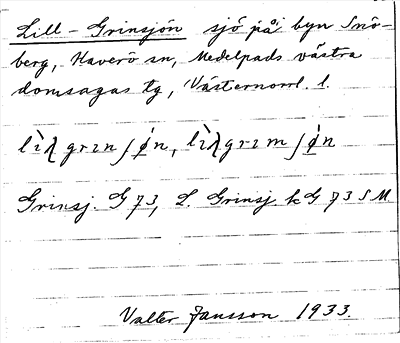 Lill-Grinsjön sjö på byn Snö-
berg, Haverö sn, Medelpads västra
domsagas tg, Västernorrl. l.
Grinsj. G 73, L. Grinsj. kG 73 SM
Valter Jansson 1933.